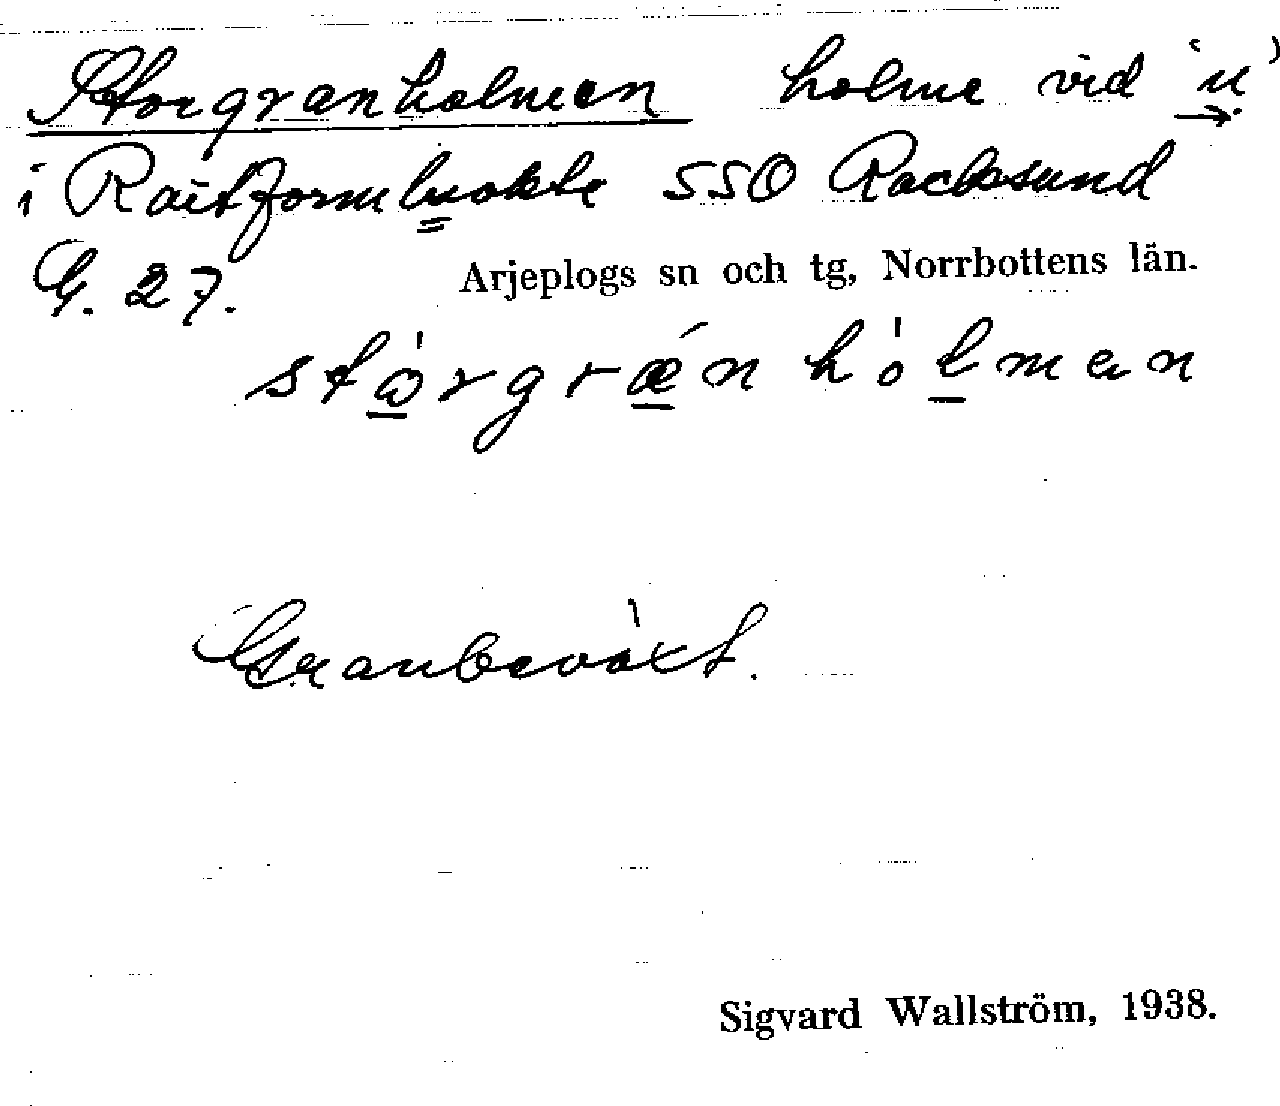 Storgranholmen holme vid 'u'
i Raitformluokte SSO Racksund
G. 27. Arjeplogs sn och tg, Norrbottens län.
Granbeväxt.
Sigvard Wallström, 1938.